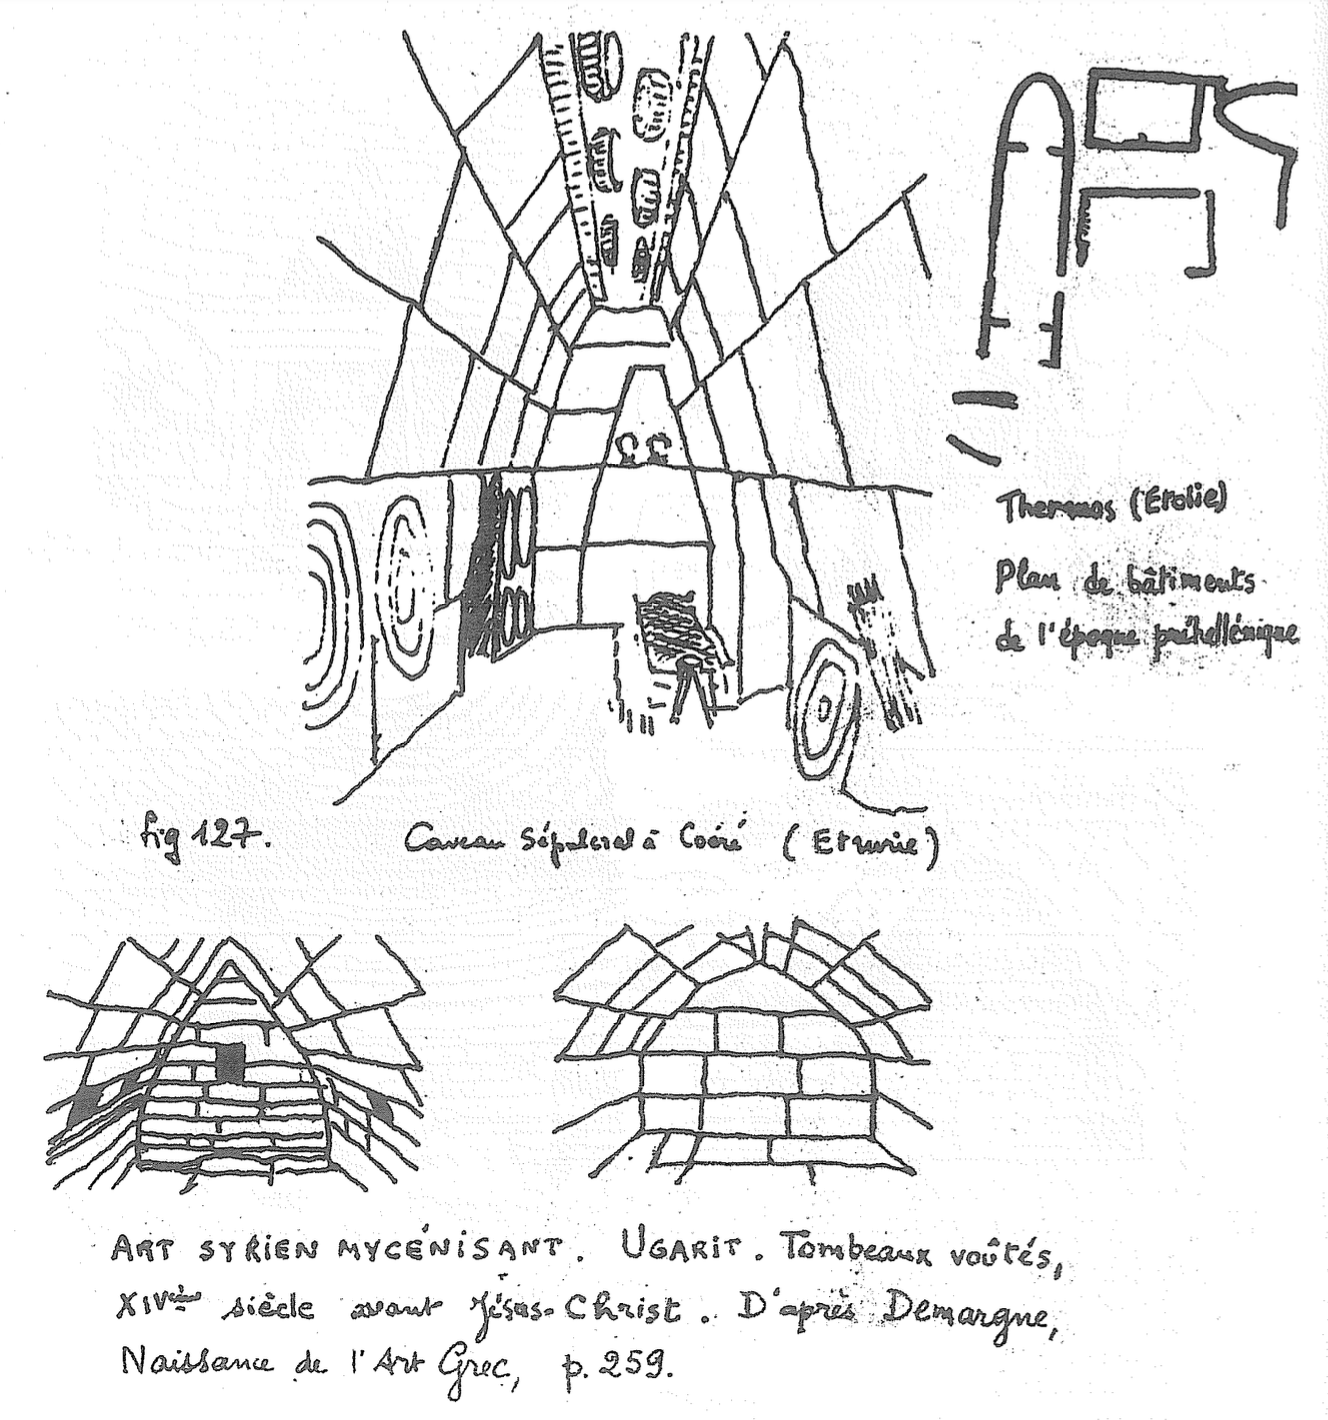 Thermos (Etolie)
Plan de bâtiments
de l'époque préhellénique
fig 127.
Caveau Sépulcral à Coéré (Etrurie)
ART SYRIEN MYCÉNISANT. UGARIT. Tombeaux voûtés,
XIVème siècle avant Jésus-Christ. D'après Demargne,
Naissance de l'Art Grec, p. 259.